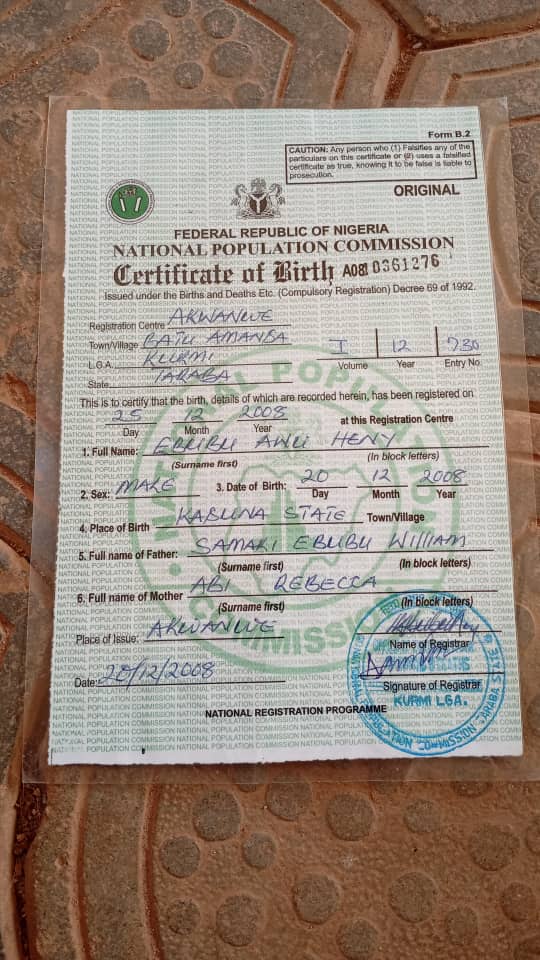 Form B.2
CAUTION: Any person who (1) Falsifies any of the
particulars on this certificate or (2) uses a falsified
certificate as true, knowing it to be false is liable to
prosecution.
ORIGINAL
FEDERAL REPUBLIC OF NIGERIA
NATIONAL POPULATION COMMISSION
Certificate of Birth A081 0361276
Issued under the Births and Deaths Etc. (Compulsory Registration) Decree 69 of 1992.
Registration Centre AKWANWE
Town/Village BATU AMANDA
L.G.A. KURMI
I 12 730
Volume Year Entry No.
State TARABA
This is to certify that the birth, details of which are recorded herein, has been registered on
25 12 2008 at this Registration Centre
Day Month Year
1. Full Name: EBUBU AWU HENY
(Surname first) (In block letters)
2. Sex: MALE 3. Date of Birth: 20 12 2008
Day Month Year
4. Place of Birth KADUNA STATE Town/Village
5. Full name of Father: SAMARI EBUBU WILLIAM
(Surname first) (In block letters)
6. Full name of Mother ABI REBECCA
(Surname first) (In block letters)
Place of Issue: AKWANWE
Name of Registrar
Date: 20/12/2008
Signature of Registrar
KURMI LGA.
NATIONAL REGISTRATION PROGRAMME